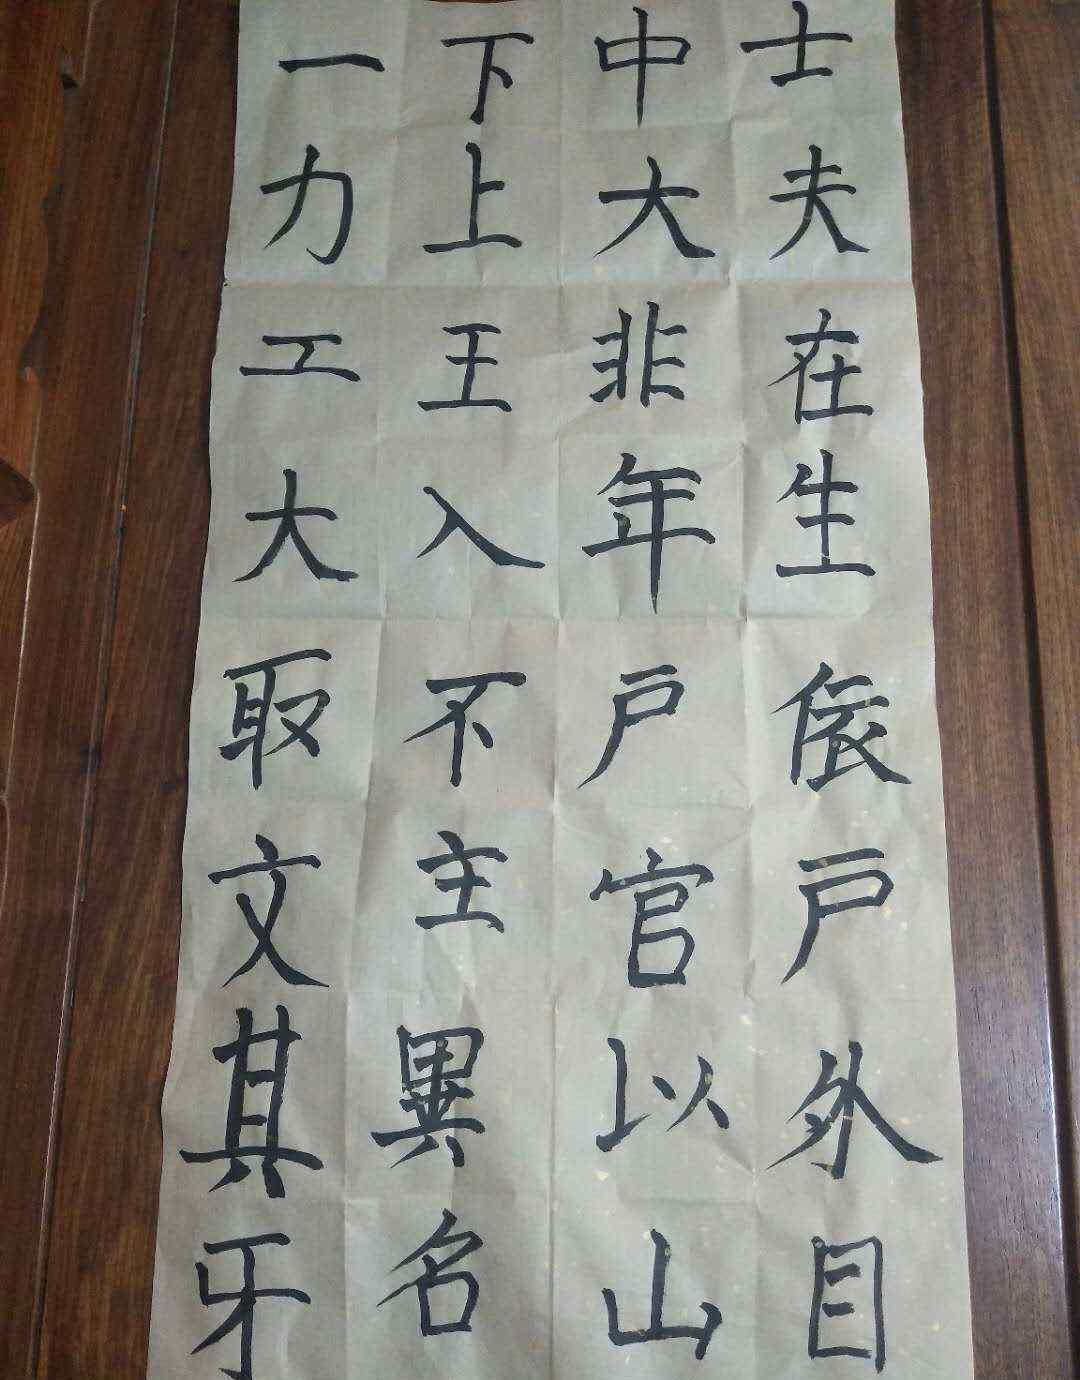 士夫在生依戸外目
中大非年戸官以山
下上王入不主異名
一力工大取文其牙